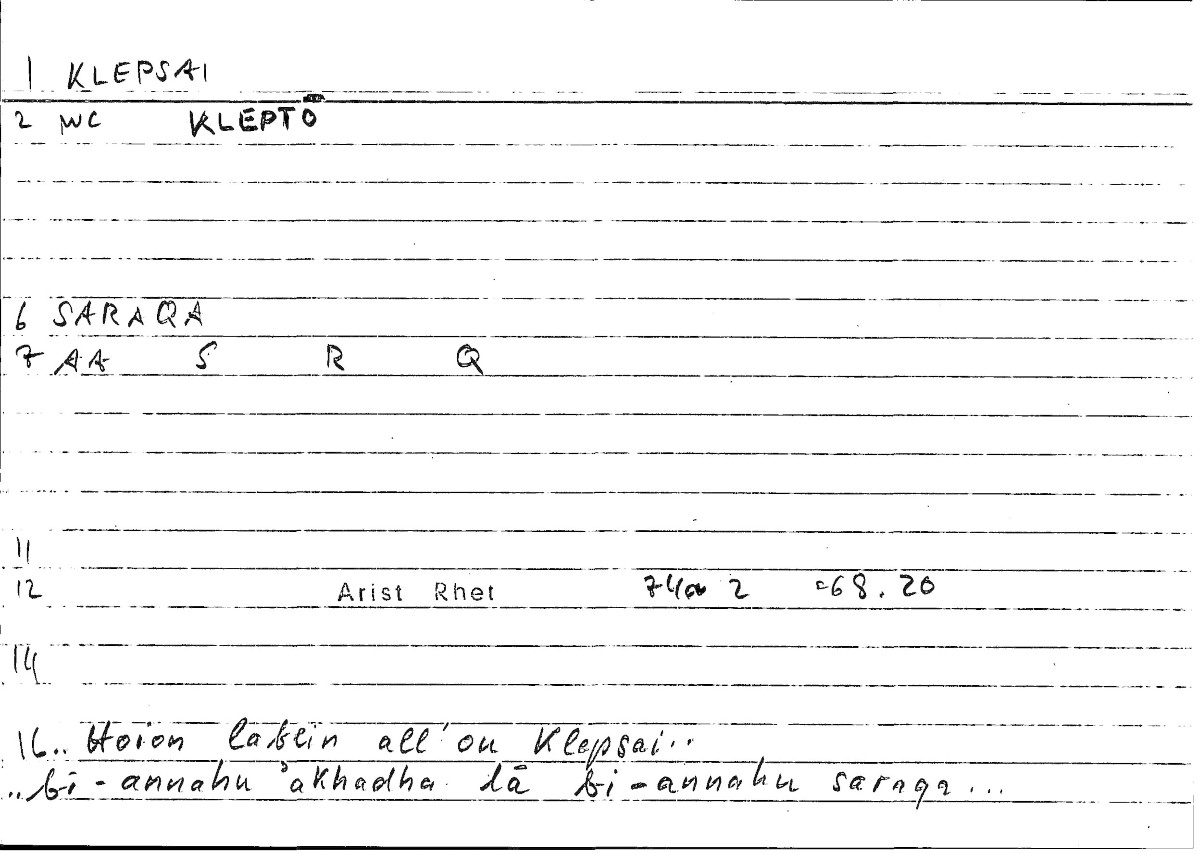 1 KLEPSAI
2 WC KLEPTŌ
6 SARAQA
7 AA S R Q
11
12 Arist Rhet 74a 2 =68.20
14
16.. Hoion labein all'ou Klepsai..
..bi-annahu 'akhadha lā bi-annahu saraqa...